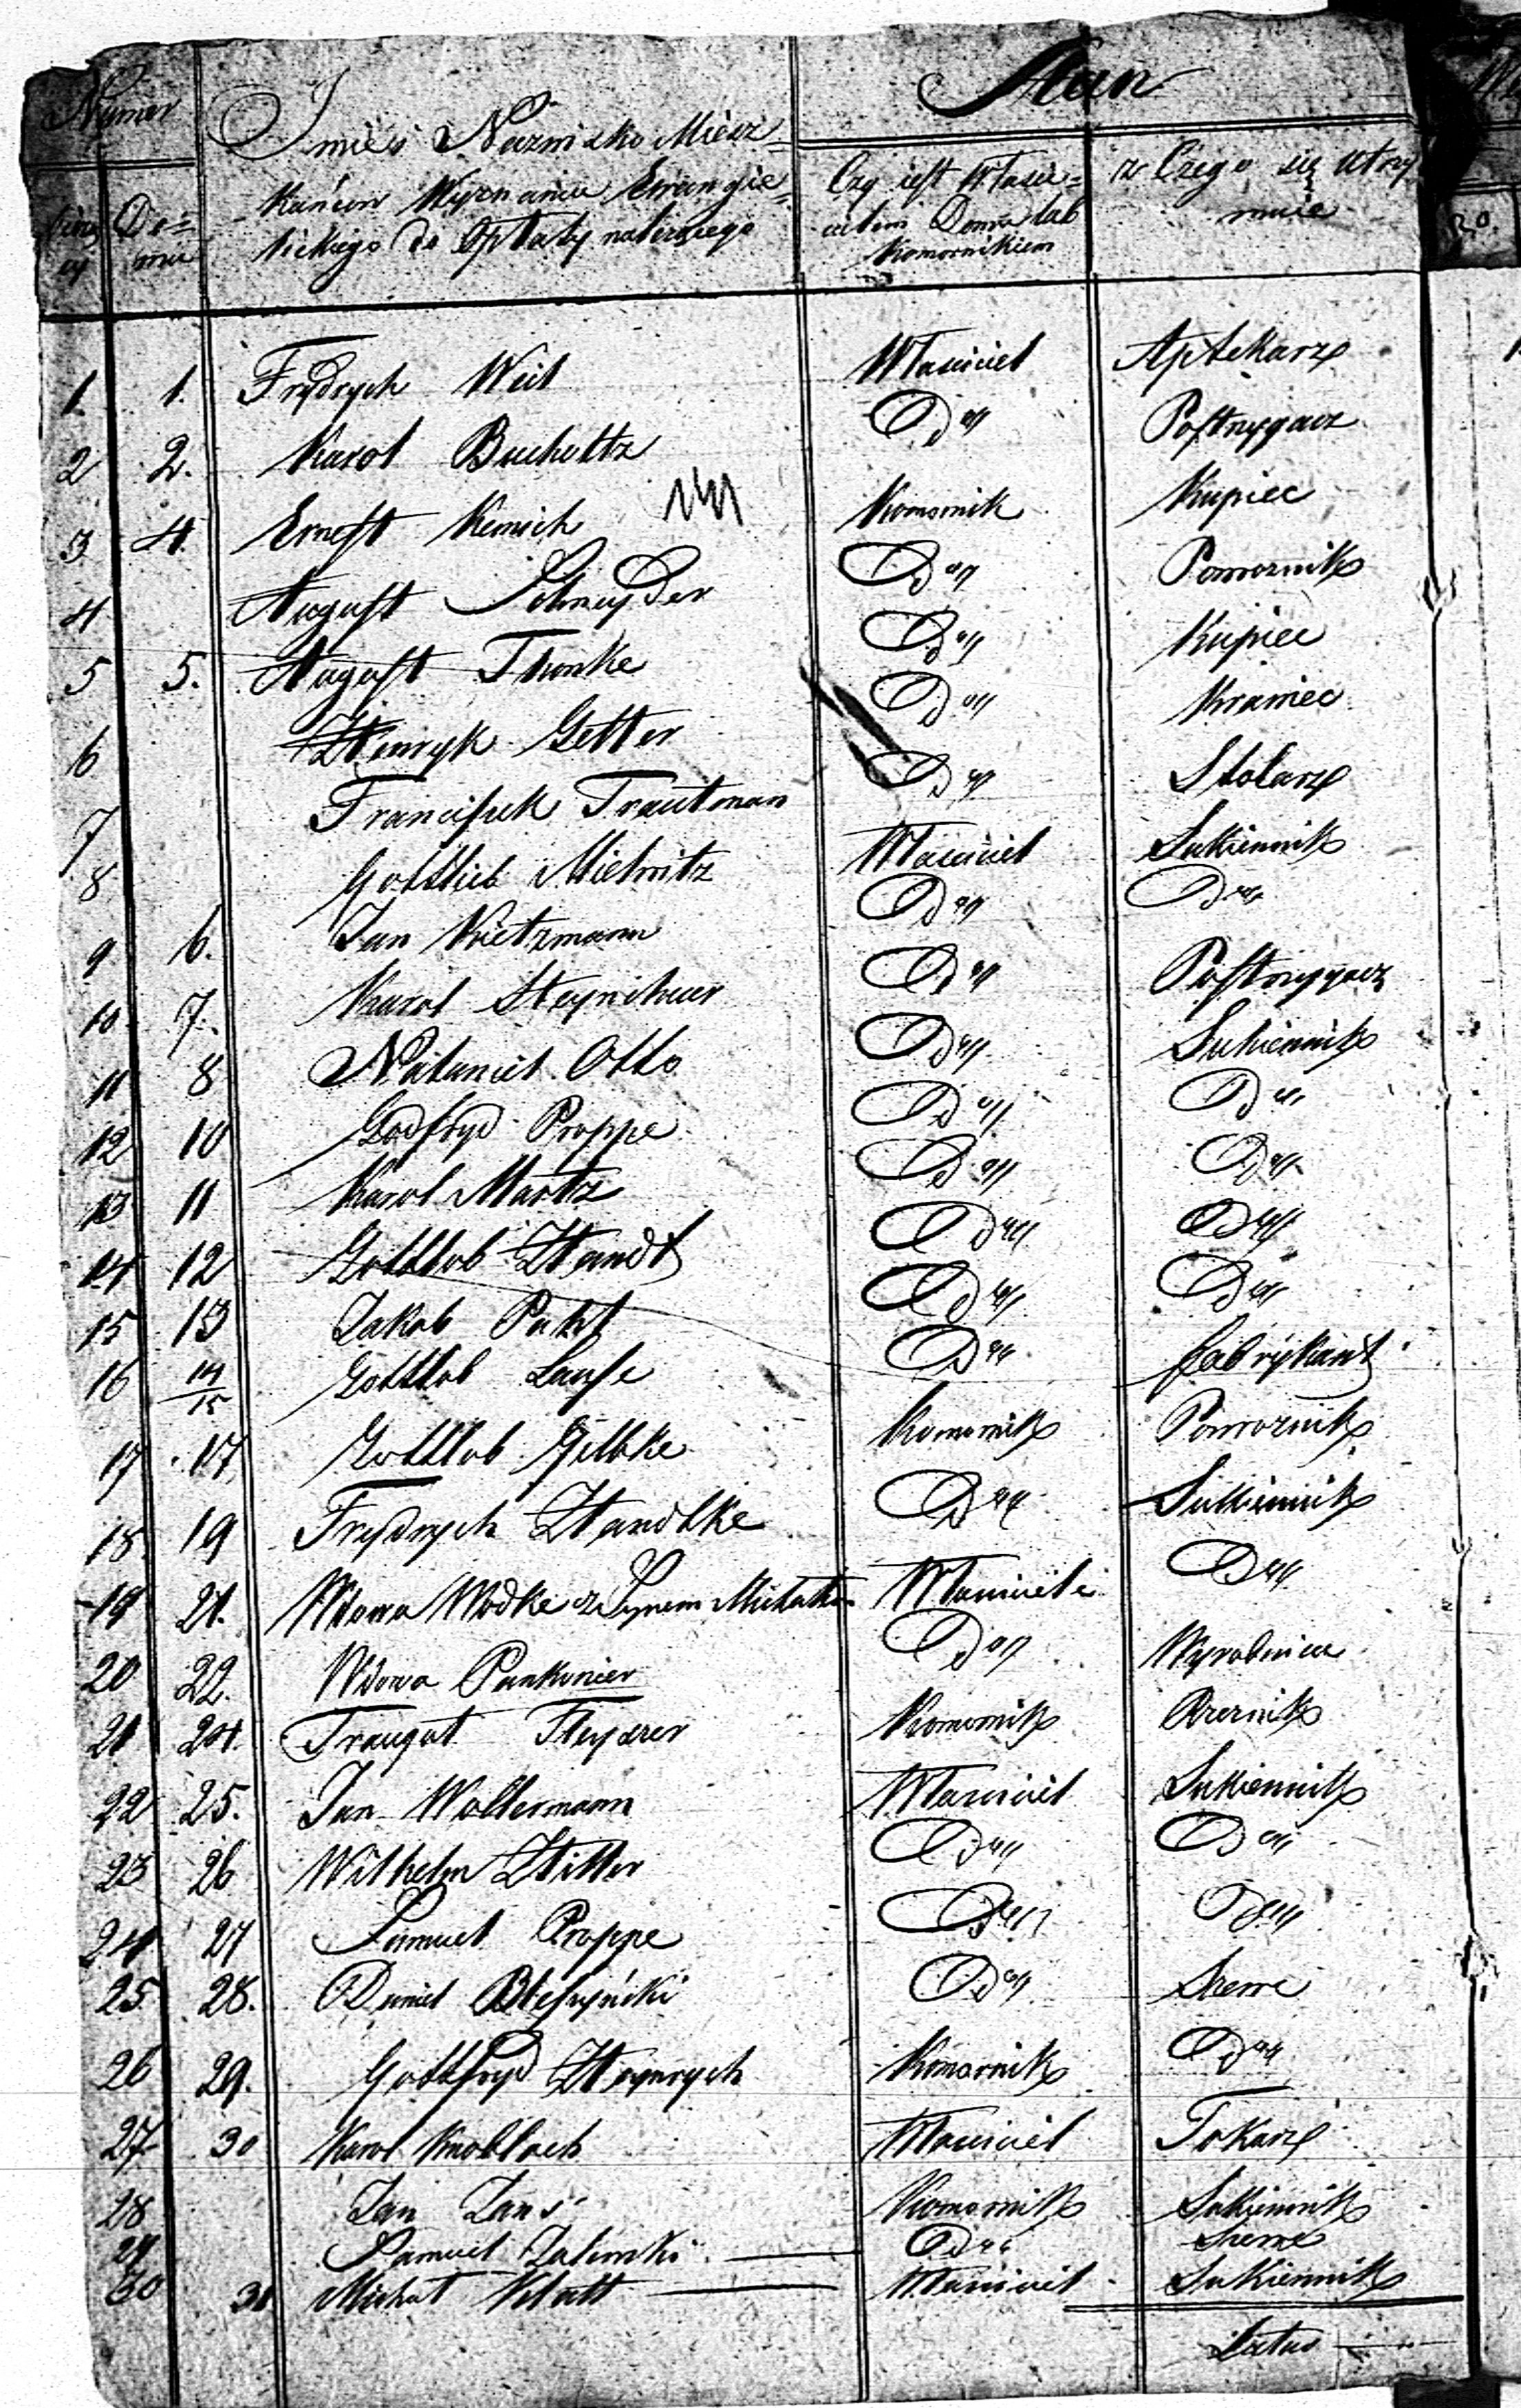 Numer
Stan
Imie i Nazwisko Miesz=
Do=
kańcow Wyznania Ewangie=
Czy jest Włascі=
z Czego się utrzy
mu
lickiego do Opłaty należącego
cielem Domu lub
muie
Komornikiem
1 1. Frydrych Weil Własciciel Aptekarz
2 2. Karol Bucholtz Do Postrzygacz
3 4. Ernest Kemich Komornik Kupiec
4 August Schneyder Do Powroznik
5 5. August Thonke Do Kupiec
6 Henryk Getter Do Krawiec
7 Franciszek Trautman Do Stolarz
8 Gottlieb Mielnitz Własciciel Sukiennik
9 6. Jan Kietzmann Do Do
10 7. Karol Do Postrzygacz
11 8 Nataniel Otto Do Sukiennik
12 10 Godfryd Proppe Do Do
13 11 Karol Martz Do Do
14 12 Gottlob Handt Do Do
15 13 Jakob Do Do
16 14/15 Gottlob Lanse Do fabrykant
17 17 Gottlob Gilbke Komornik Powroznik
18 19 Frydrych Handtke Do Sukiennik
19 21. Wdowa Wodke z Synem Własciciele Do
20 22. Wdowa Pankonier Do Wyrobnica
21 24. Traugot Komornik Rzeznik
22 25. Jan Woltermann Własciciel Sukiennik
23 26 Wilhelm Hiller Do Do
24 27 Samuel Proppe Do Do
25 28. Daniel Do Szewc
26 29. Gottfryd Heynrych Komornik Do
27 30 Karol Knobloch Własciciel Tokarz
28 Jan Komornik Sukiennik
29 Samuel Zalewski Do Szewc
30 31 Michał Klatt Własciciel Sukiennik
Latus